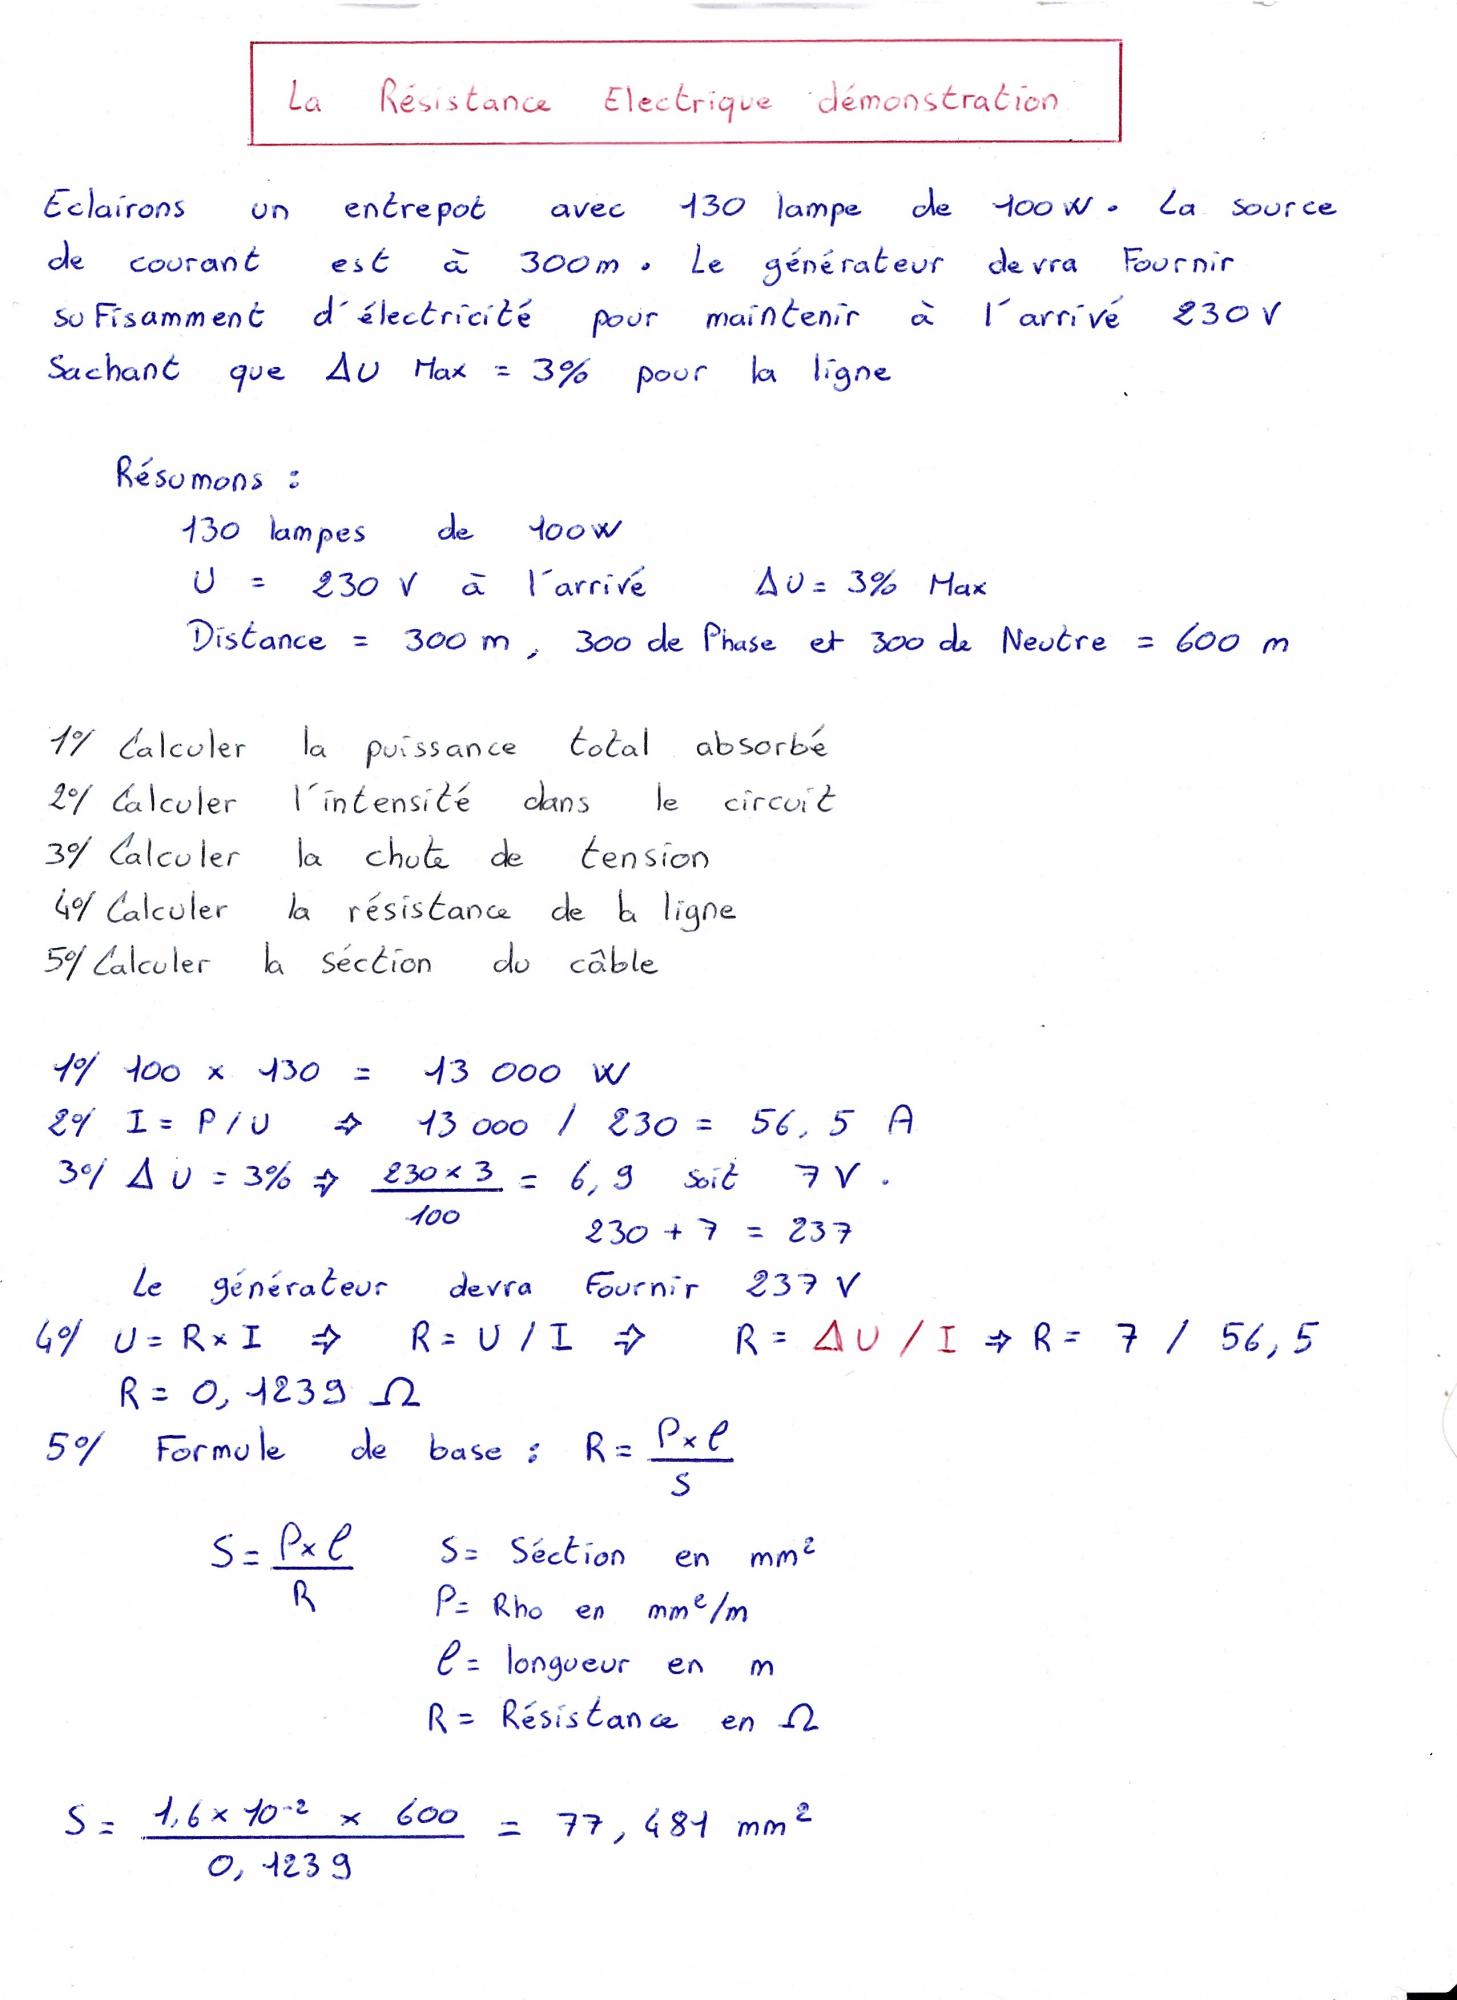 La Résistance Electrique démonstration
Eclairons un entrepot avec 130 lampe de 100W. La source
de courant est à 300m. Le générateur devra Fournir
suFisamment d'électricité pour maintenir à l'arrivé 230V
Sachant que ΔU Max = 3% pour la ligne
Résumons :
130 lampes de 100W
U = 230 V à l'arrivé ΔU = 3% Max
Distance = 300 m, 300 de Phase et 300 de Neutre = 600 m
1°/ Calculer la puissance total absorbé
2°/ Calculer l'intensité dans le circuit
3°/ Calculer la chute de tension
4°/ Calculer la résistance de la ligne
5°/ Calculer la séction du câble
1°/ 100 × 130 = 13 000 W
2°/ I = P/U ⇒ 13 000 / 230 = 56,5 A
3°/ ΔU = 3% ⇒ 230 × 3 / 100 = 6,9 soit 7 V.
230 + 7 = 237
Le générateur devra Fournir 237 V
4°/ U = R × I ⇒ R = U / I ⇒ R = ΔU / I ⇒ R = 7 / 56,5
R = 0,1239 Ω
5°/ Formule de base : R = ρ × ℓ / S
S = ρ × ℓ / R S = Séction en mm²
ρ = Rho en mm²/m
ℓ = longueur en m
R = Résistance en Ω
S = 1,6 × 10⁻² × 600 / 0,1239 = 77,481 mm²